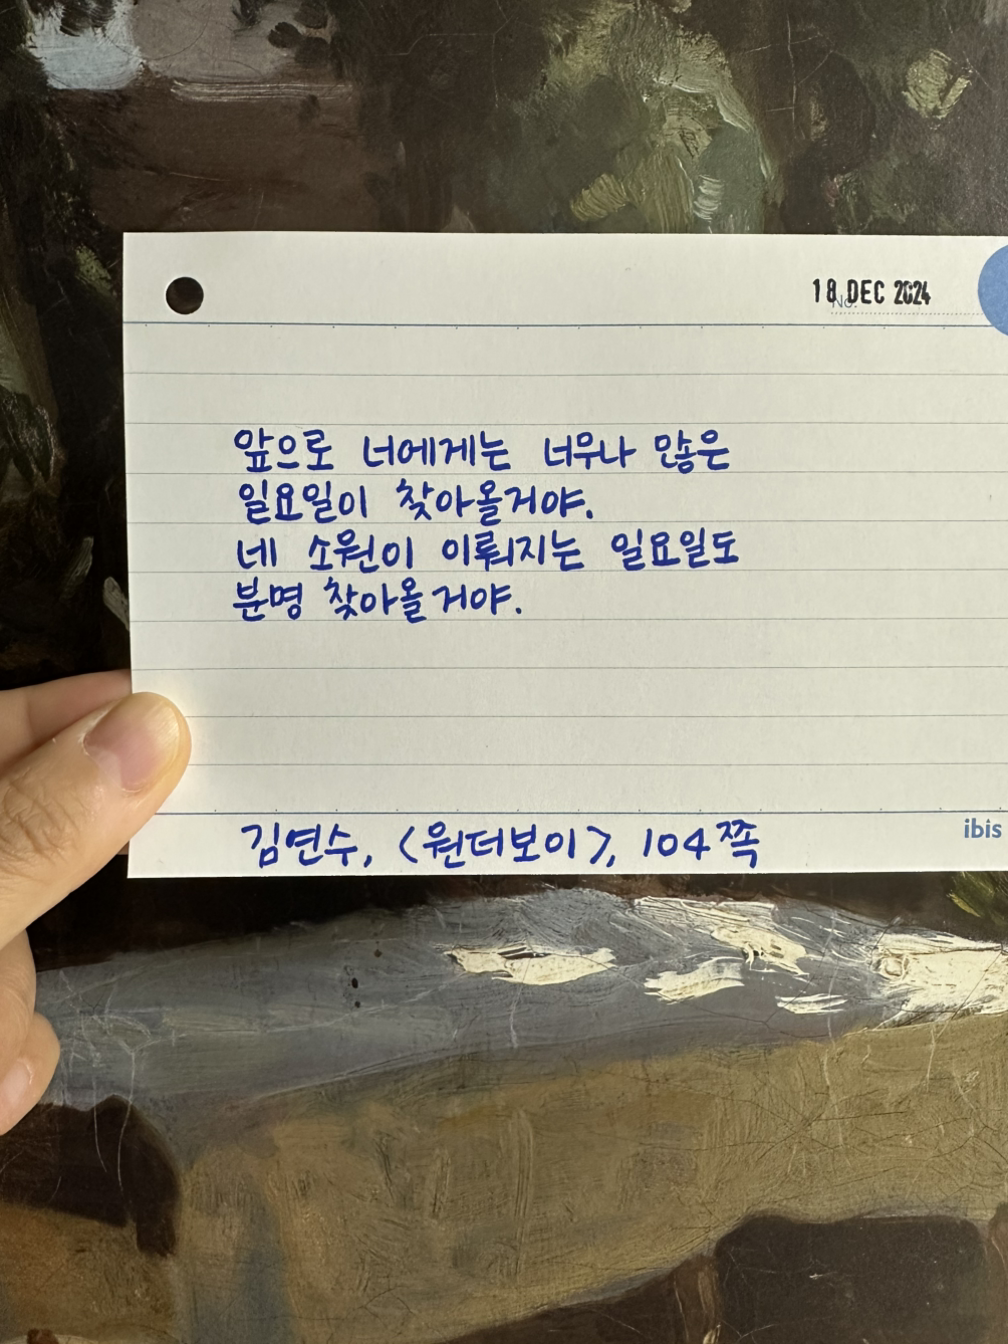 18 DEC 2024
No.
앞으로 너에게는 너무나 많은
일요일이 찾아올거야.
네 소원이 이뤄지는 일요일도
분명 찾아올거야.
김연수, <원더보이>, 104쪽
ibis